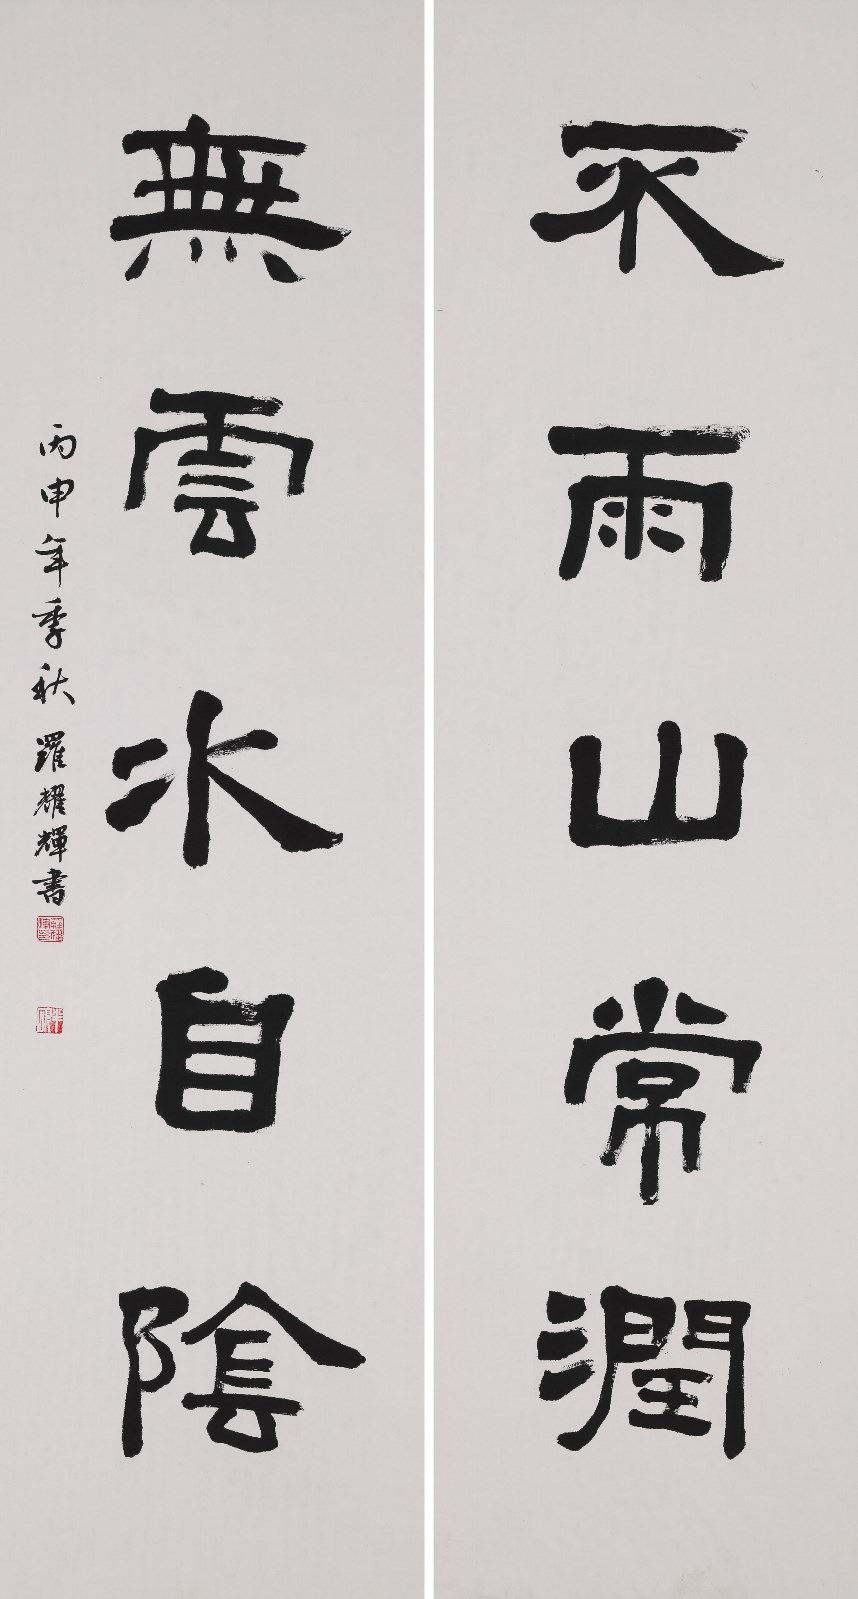 不雨山常潤
無雲水自陰
丙申年季秋羅耀輝書